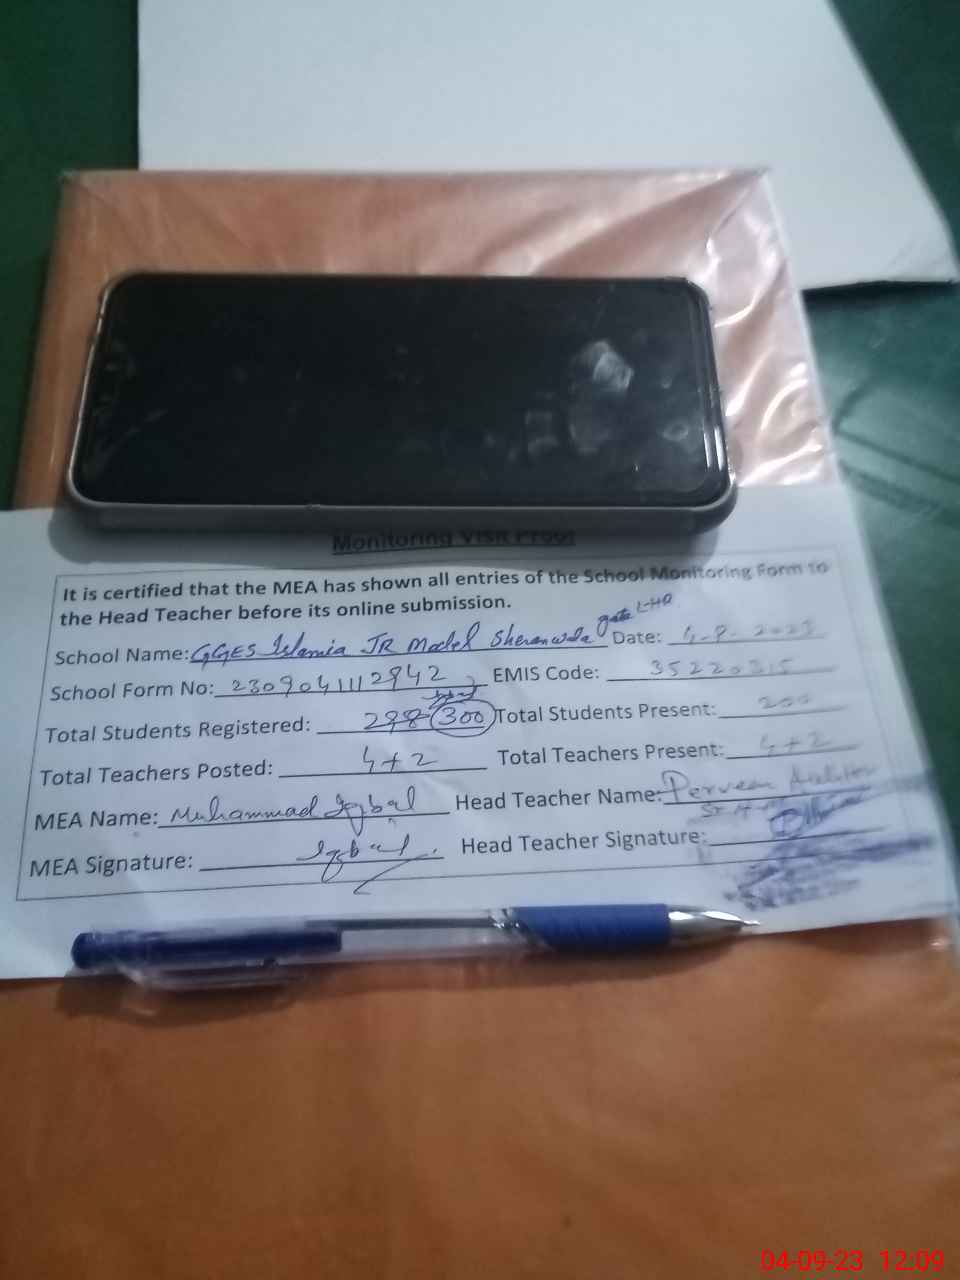 Monitoring Visit Proof
It is certified that the MEA has shown all entries of the School Monitoring Form to
the Head Teacher before its online submission.
School Name: GGES Islamia JR Model Sheranwala gate LHR Date: 4-9-2023
School Form No: 2309041112942 EMIS Code: 35220315
Total Students Registered: 298 300 Total Students Present: 200
Total Teachers Posted: 4+2 Total Teachers Present: 4+2
MEA Name: Muhammad Iqbal Head Teacher Name: Perveen
MEA Signature: Iqbal Head Teacher Signature:
04-09-23 12:09